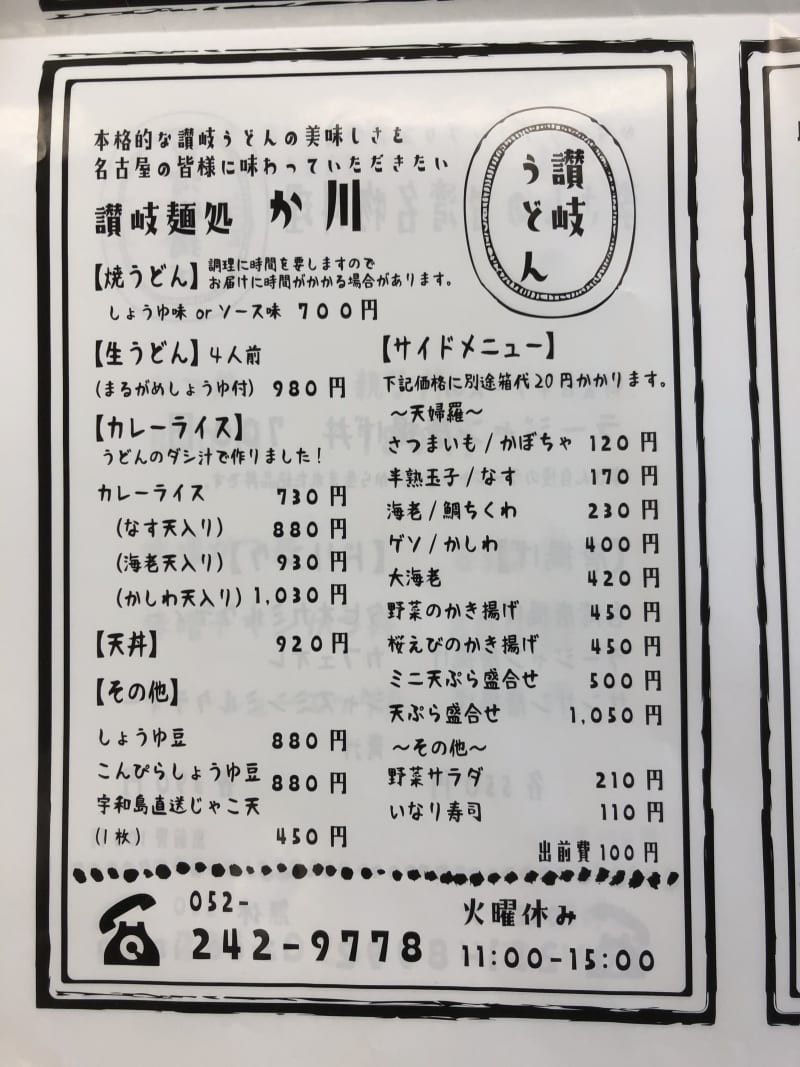 本格的な讃岐うどんの美味しさを
名古屋の皆様に味わっていただきたい
讃岐麺処 か川
讃岐
うどん
【焼うどん】調理に時間を要しますので
お届けに時間がかかる場合があります。
しょうゆ味 or ソース味 700円
【生うどん】4人前
(まるがめしょうゆ付) 980円
【カレーライス】
うどんのダシ汁で作りました!
カレーライス 730円
(なす天入り) 880円
(海老天入り) 930円
(かしわ天入り) 1,030円
【天丼】 920円
【その他】
しょうゆ豆 880円
こんぴらしょうゆ豆 880円
宇和島直送じゃこ天
(1枚) 450円
【サイドメニュー】
下記価格に別途箱代20円かかります。
〜天婦羅〜
さつまいも/かぼちゃ 120円
半熟玉子/なす 170円
海老/鯛ちくわ 230円
ゲソ/かしわ 400円
大海老 420円
野菜のかき揚げ 450円
桜えびのかき揚げ 450円
ミニ天ぷら盛合せ 500円
天ぷら盛合せ 1,050円
〜その他〜
野菜サラダ 210円
いなり寿司 110円
出前費100円
052-
242-9778
火曜休み
11:00-15:00